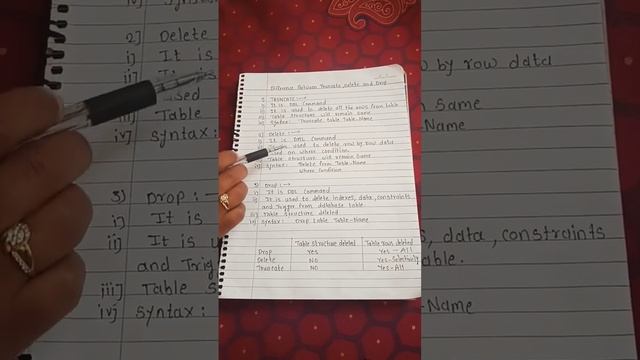 Difference Between Truncate, delete and Drop
1) TRUNCATE :→
i) It is DDL Command
ii) It is used to delete all the rows from table
iii) Table structure will remain same
iv) Syntax: Truncate table Table-Name
2) Delete :→
i) It is DML Command
used to delete row by row data
based on where condition.
Table structure will remain same
iv) Syntax: Delete from Table-Name
where condition
3) Drop :→
i) It is DDL Command
ii) It is used to delete indexes, data, constraints
and Trigger from database table
iii) Table structure deleted
iv) Syntax: Drop table Table-Name
Table structure deleted Table rows deleted
Drop Yes Yes - All
Delete NO Yes-Selectively
Truncate NO Yes-All
2] Delete
i] It is
ii] It is
used
iii] Table
iv] Syntax:
3) Drop: -
i] It is
ii] It is u
and Trig
iii] Table s
iv] Syntax:
w by row data
n same
-Name
s, data, constraints
table.
-Name